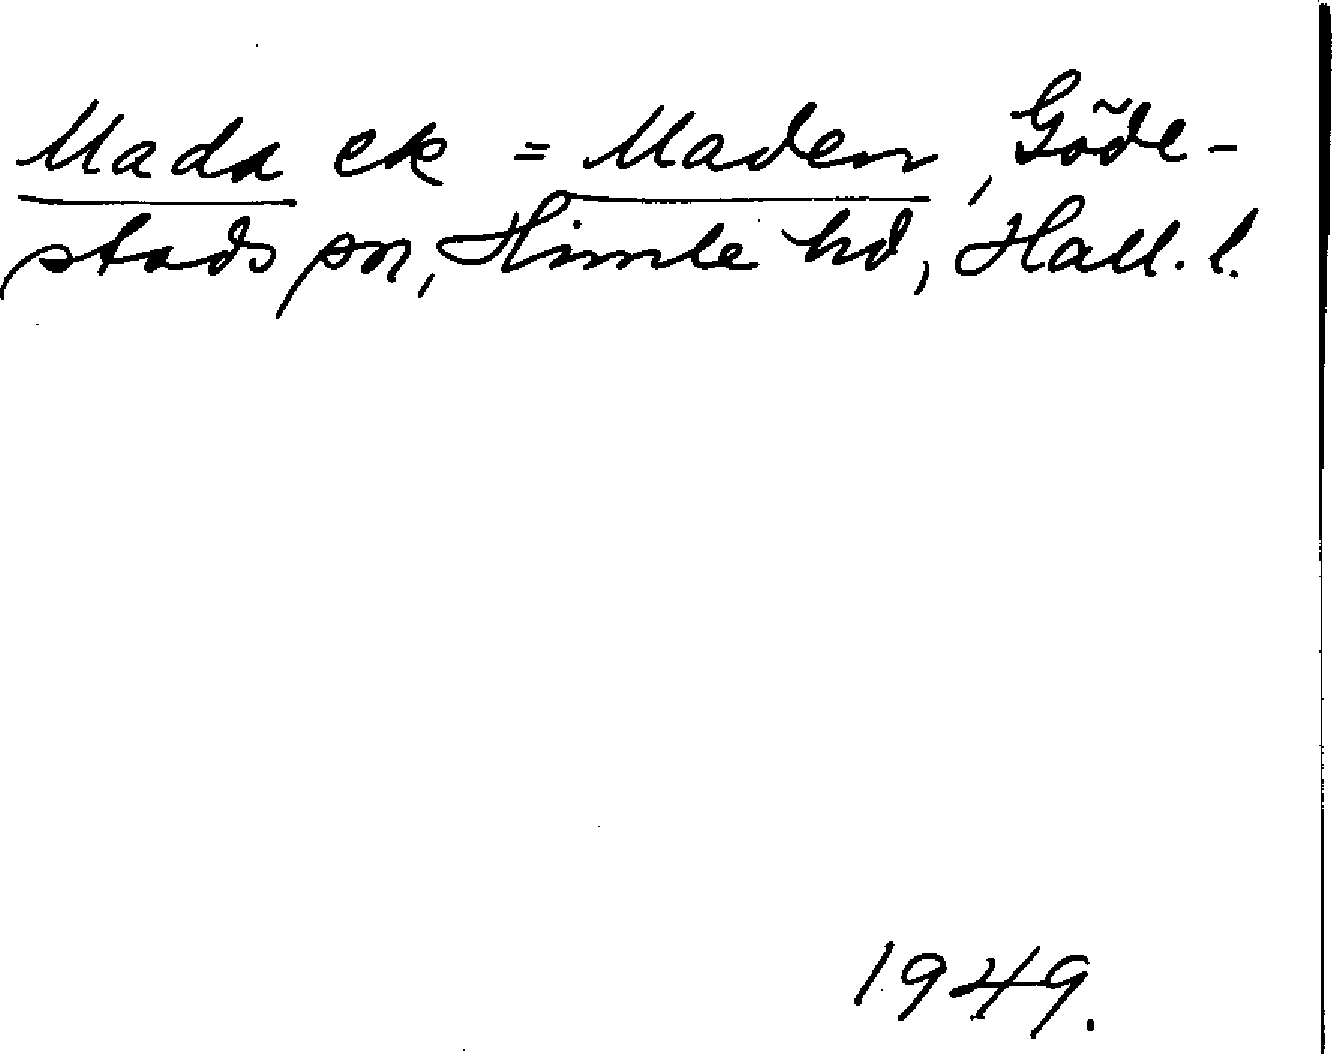 Mada ek = Maden, Göde-
stads sn, Himle hd, Hall. l.
1949.